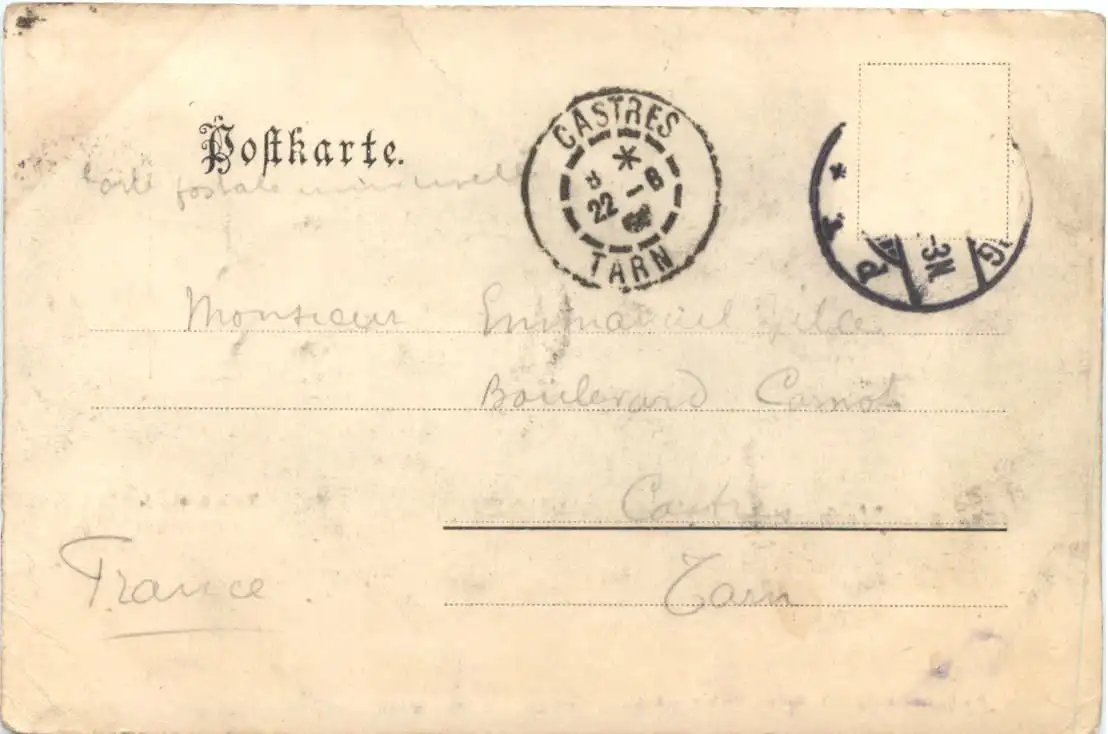 Postkarte.
Carte postale universelle
CASTRES
*
22 -8
TARN
* 1 P
-3N.
G
Monsieur Emmanuel
Boulevard Carnot
Castres
Tarn
France